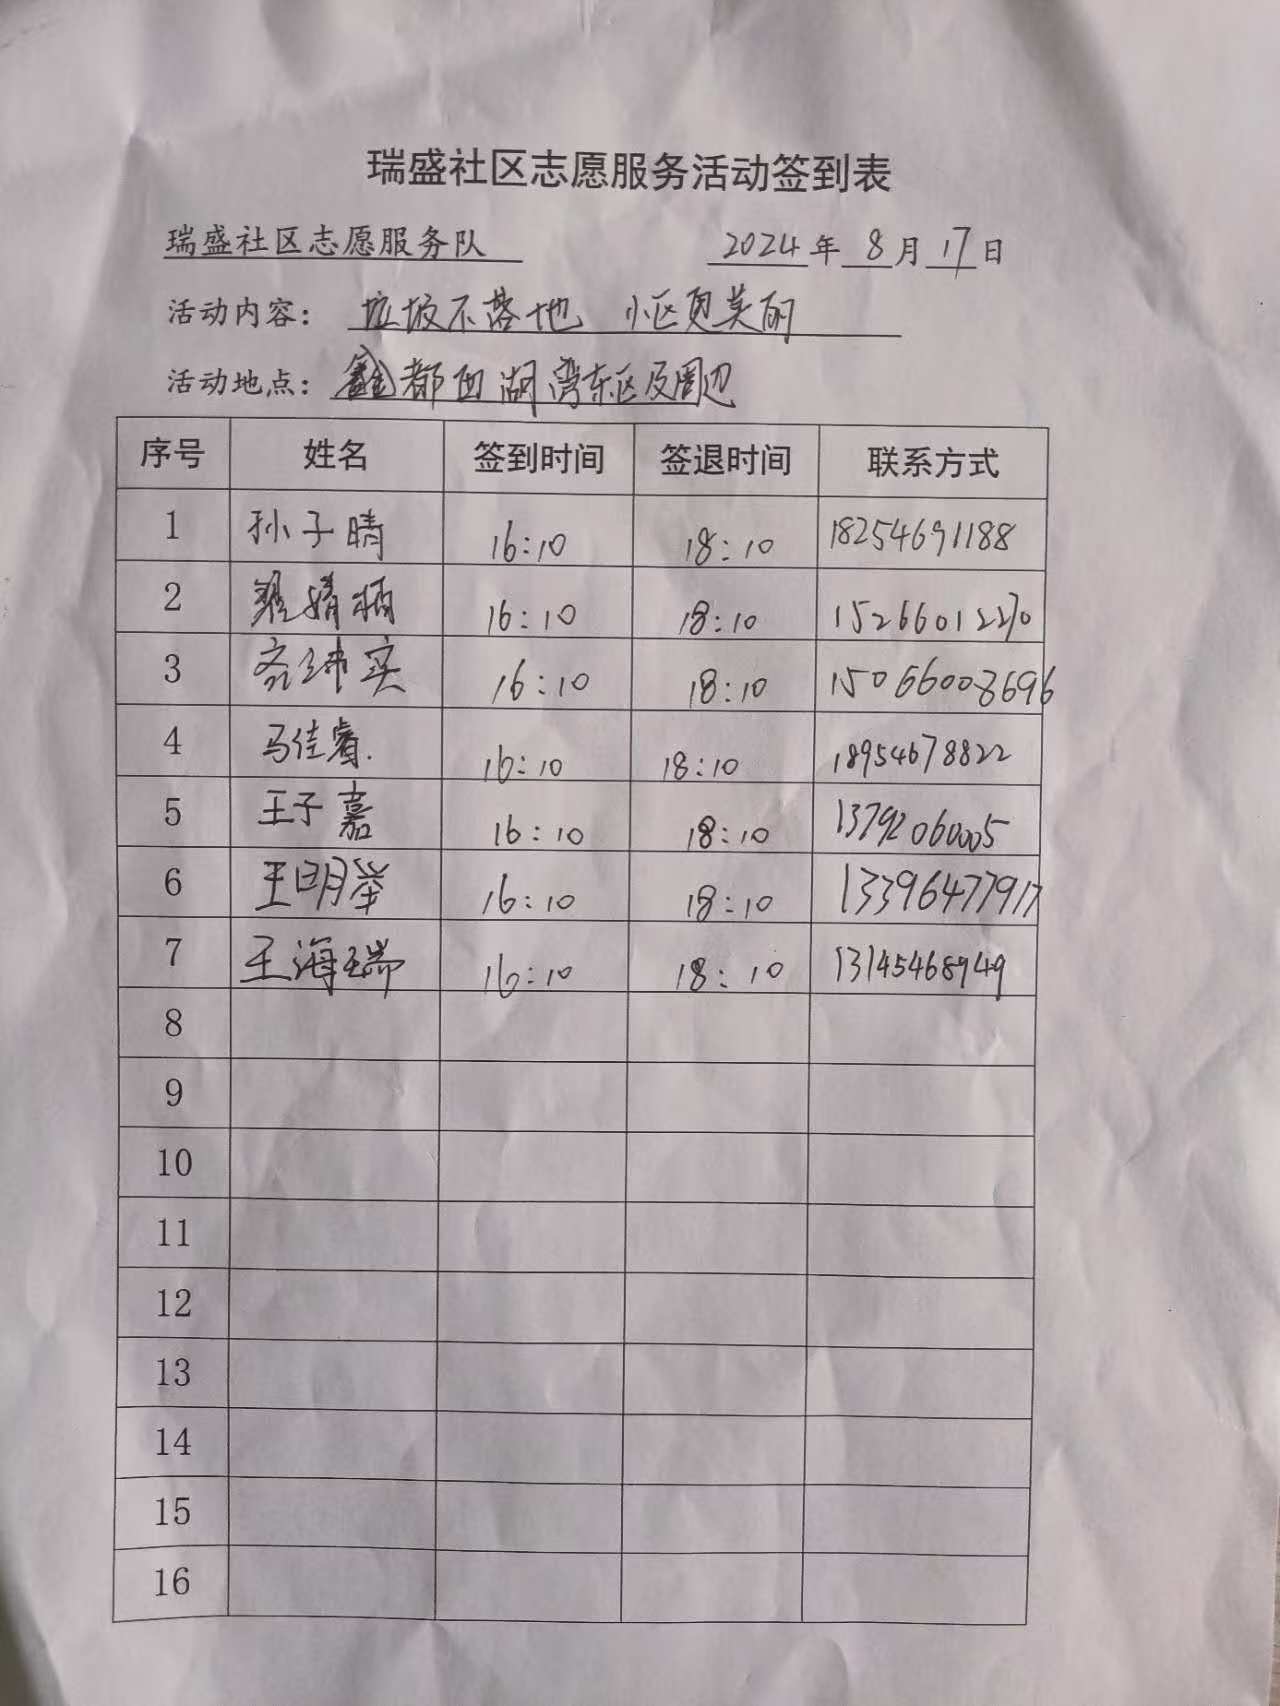 瑞盛社区志愿服务活动签到表
瑞盛社区志愿服务队 2024年8月17日
活动内容: 垃圾不落地 小区更美丽
活动地点: 鑫都西湖湾东区及周边
序号 姓名 签到时间 签退时间 联系方式
1 孙子晴 16:10 18:10 18254691188
2 16:10 18:10 15266012270
3 16:10 18:10 15066008696
4 马佳睿 16:10 18:10 18954678822
5 王子嘉 16:10 18:10 13792060005
6 王明举 16:10 18:10 13396477917
7 王海瑞 16:10 18:10 13145468949
8
9
10
11
12
13
14
15
16